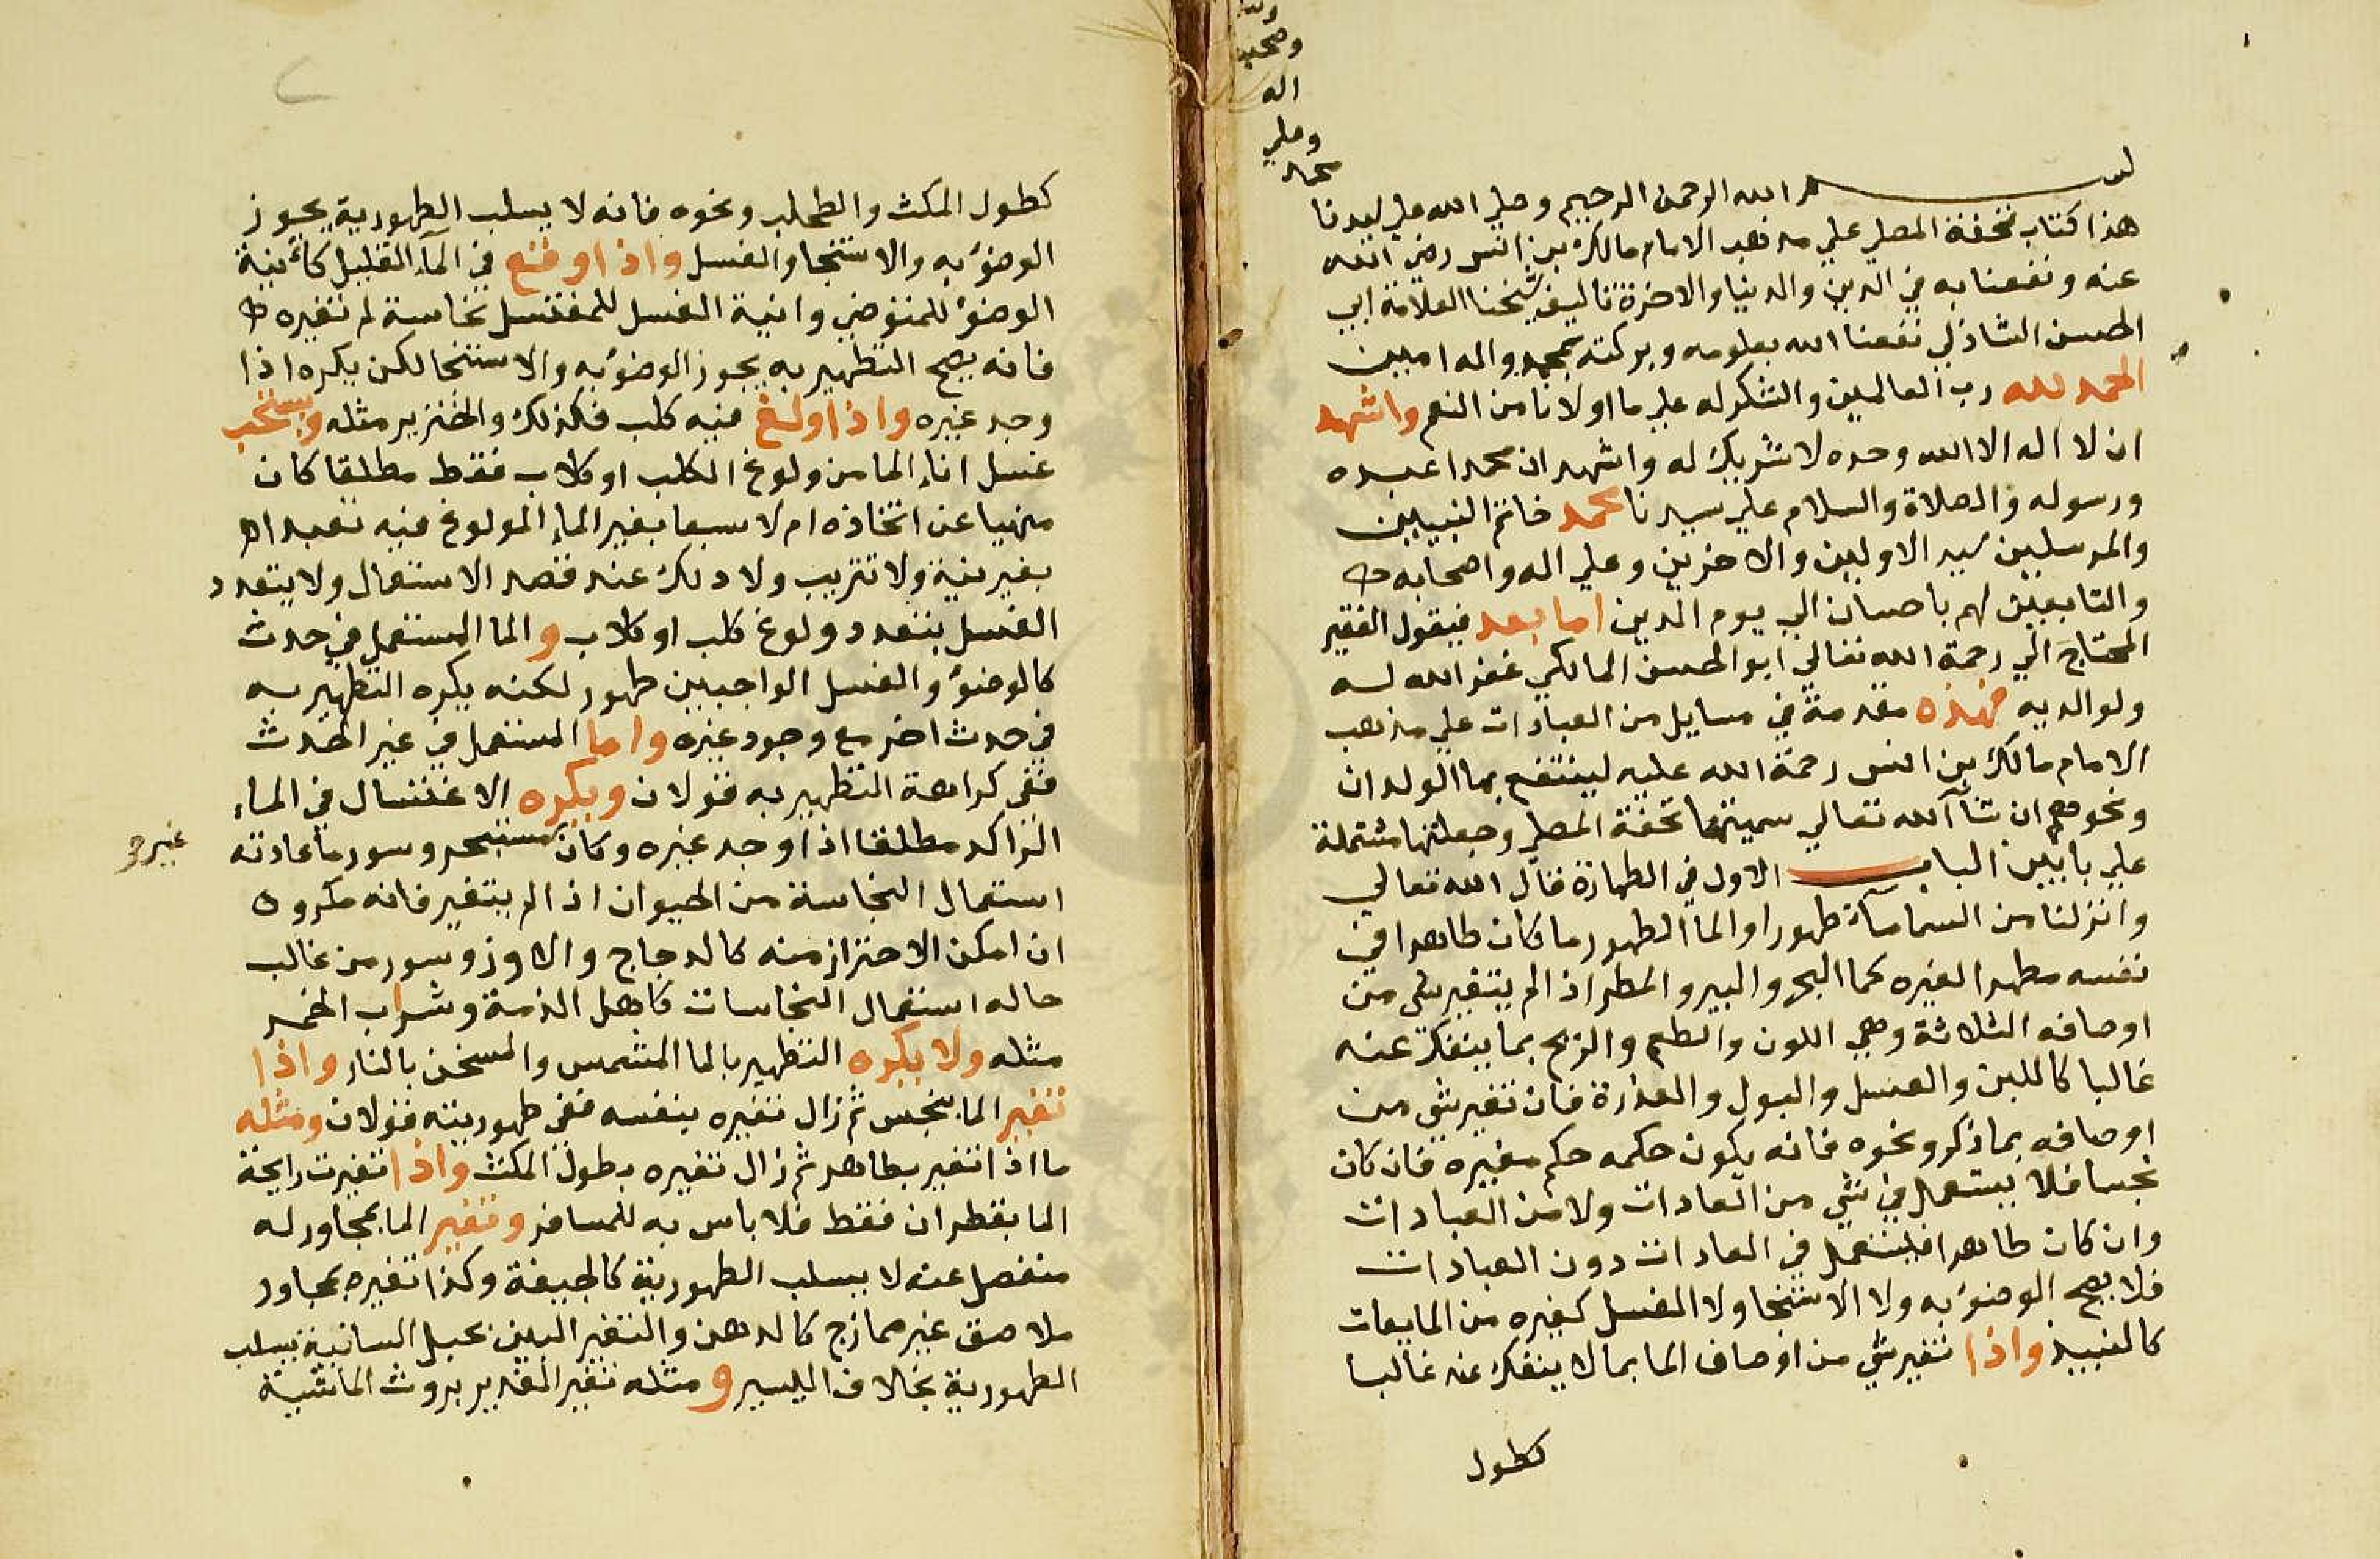 بسم الله الرحمن الرحيم وصلي الله علي سيدنا
محمد
وعلي
اله
وصحبه
هذا كتاب تحفة المصلي علي مذهب الامام مالك بن انس رضي الله
عنه ونفعنا به في الدين والدنيا والاخرة تاليف شيخنا العلامة ابي
الحسن الشاذلي نفعنا الله بعلومه وبركته بمحمد واله امين
الحمد لله رب العالمين والشكر له علي ما اولانا من النعم واشهد
ان لا اله الا الله وحده لا شريك له واشهد ان محمدا عبده
ورسوله والصلاة والسلام علي سيدنا محمد خاتم النبيين
والمرسلين سيد الاولين والاخرين وعلي اله واصحابه
والتابعين لهم باحسان الي يوم الدين اما بعد فيقول الفقير
المحتاج الي رحمة الله تعالي ابو الحسن المالكي غفر الله له
ولوالديه فهذه مقدمة في مسايل من العبادات علي مذهب
الامام مالك بن انس رحمة الله عليه لينتفع بها الولدان
ونحوهم ان شآ الله تعالي سميتها تحفة المصلي وجعلتها مشتملة
علي بابين الباب الاول في الطهارة قال الله تعالي
وانزلنا من السما مآء طهورا والما الطهور ما كان طاهرا في
نفسه مطهرا لغيره كما البحر والبير والمطر اذا لم يتغير شي من
اوصافه الثلاثة وهي اللون والطعم والريح بما ينفك عنه
غالبا كاللبن والعسل والبول والعذرة فان تغير شي من
اوصافه بما ذكر ونحوه فانه يكون حكمه حكم مغيره فان كان
نجسا فلا يستعمل في شي من العادات ولا من العبادات
وان كان طاهرا فليستعمل في العادات دون العبادات
فلا يصح الوضوء به ولا الاستنجا ولا الغسل كغيره من المايعات
كالنبيذ واذا تغير شي من اوصاف الما بما لا ينفك عنه غالبا
كطول
كطول المكث والطحلب ونحوه فانه لا يسلب الطهورية يجوز
الوضوء به والاستنجا والغسل واذا وقع في المآء القليل كآنية
الوضوء للمتوضي وانية الغسل للمغتسل نجاسة لم تغيره
فانه يصح التطهير به يجوز الوضوء به والاستنجا لكن يكره اذا
وجد غيره واذا ولغ فيه كلب فكذلك والخنزير مثله ويستحب
غسل اناء الما من ولوغ الكلب او كلاب فقط مطلقا كان
منهيا عن اتخاذه ام لا سبعا بغير الماء المولوغ فيه تعبدا
بغير نية ولا تتريب ولا دلك عند قصد الاستعمال ولا يتعدد
الغسل بتعدد ولوغ كلب او كلاب والما المستعمل في حدث
كالوضوء والغسل الواجبين طهور لكنه يكره التطهير به
في حدث اخر مع وجود غيره واما المستعمل في غير الحدث
ففي كراهة التطهير به قولان ويكره الاغتسال في الماء
الراكد مطلقا اذا وجد غيره وكان مستبحر وسور ما عادته
غير
استعمال النجاسة من الحيوان اذا لم يتغير فانه مكروه
ان امكن الاحتراز منه كالدجاج والاوز وسور من غالب
حاله استعمال النجاسات كاهل الذمة وشراب الخمر
مثله ولا يكره التطهير بالما المشمس والمسخن بالنار واذا
تغير الما بنجس ثم زال تغيره بنفسه ففي طهوريته قولان ومثله
ما اذا تغير بطاهر ثم زال تغيره بطول المكث واذا تغيرت رايحة
الما بقطران فقط فلا باس به للمسافر وتغير الما بمجاور له
منفصل عنه لا يسلب الطهورية كالجيفة وكذا تغيره بمجاور
ملاصق غير ممازج كالدهن والتغير البين بحبل السانية يسلب
الطهورية بخلاف اليسير و مثله تغير الغدير بروث الماشية